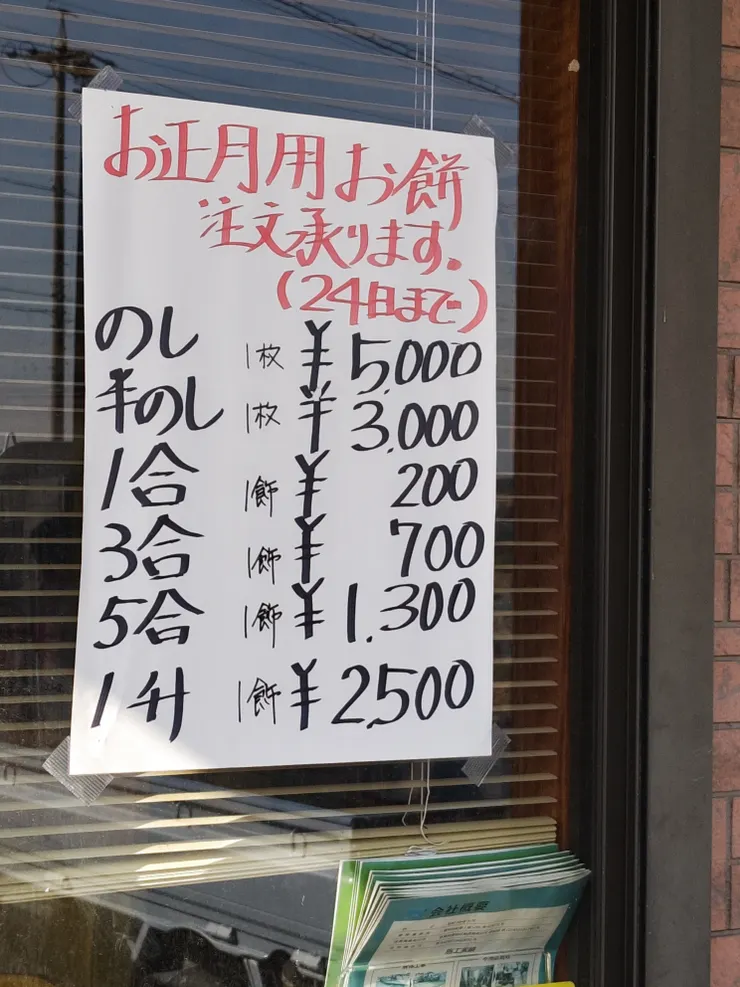 お正月用お餅
注文承ります。
(24日まで)
のし 1枚 ¥5,000
半のし 1枚 ¥3,000
1合 1飾 ¥200
3合 1飾 ¥700
5合 1飾 ¥1,300
1升 1飾 ¥2,500
会社概要
施工実績